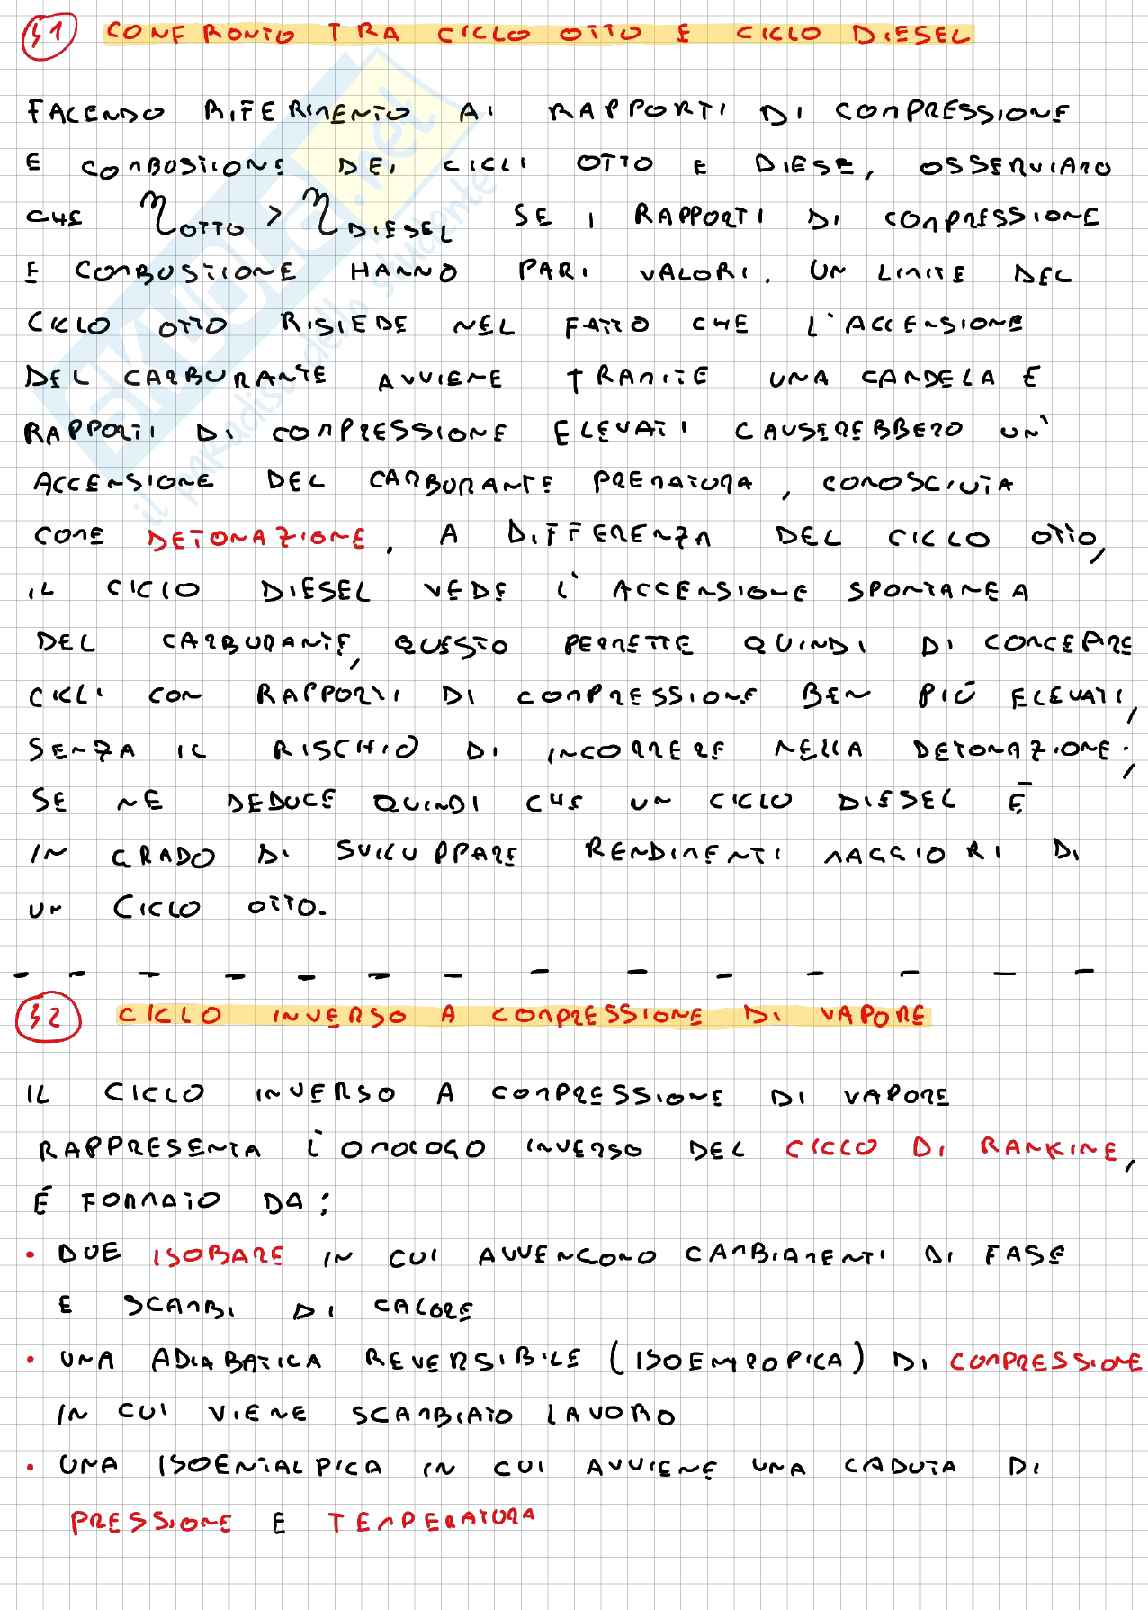 31 CONFRONTO TRA CICLO OTTO E CICLO DIESEL
FACENDO RIFERIMENTO AI RAPPORTI DI COMPRESSIONE
E COMBUSTIONE DEI CICLI OTTO E DIESE, OSSERVIAMO
CHE η OTTO > η DIESEL SE I RAPPORTI DI COMPRESSIONE
E COMBUSTIONE HANNO PARI VALORI. UN LIMITE DEL
CICLO OTTO RISIEDE NEL FATTO CHE L'ACCENSIONE
DEL CARBURANTE AVVIENE TRAMITE UNA CANDELA E
RAPPORTI DI COMPRESSIONE ELEVATI CAUSEREBBERO UN'
ACCENSIONE DEL CARBURANTE PREMATURA, CONOSCIUTA
COME DETONAZIONE, A DIFFERENZA DEL CICLO OTTO,
IL CICLO DIESEL VEDE L'ACCENSIONE SPONTANEA
DEL CARBURANTE, QUESTO PERMETTE QUINDI DI CONCEPIRE
CICLI CON RAPPORTI DI COMPRESSIONE BEN PIÙ ELEVATI,
SENZA IL RISCHIO DI INCORRERE NELLA DETONAZIONE;
SE NE DEDUCE QUINDI CHE UN CICLO DIESEL È
IN GRADO DI SVILUPPARE RENDIMENTI MAGGIORI DI
UN CICLO OTTO.
32 CICLO INVERSO A COMPRESSIONE DI VAPORE
IL CICLO INVERSO A COMPRESSIONE DI VAPORE
RAPPRESENTA L'OMOLOGO INVERSO DEL CICLO DI RANKINE,
È FORMATO DA:
• DUE ISOBARE IN CUI AVVENGONO CAMBIAMENTI DI FASE
E SCAMBI DI CALORE
• UNA ADIABATICA REVERSIBILE (ISOENTROPICA) DI COMPRESSIONE
IN CUI VIENE SCAMBIATO LAVORO
• UNA ISOENTALPICA IN CUI AVVIENE UNA CADUTA DI
PRESSIONE E TEMPERATURA
SKUOLA.net
il paradiso dello studente